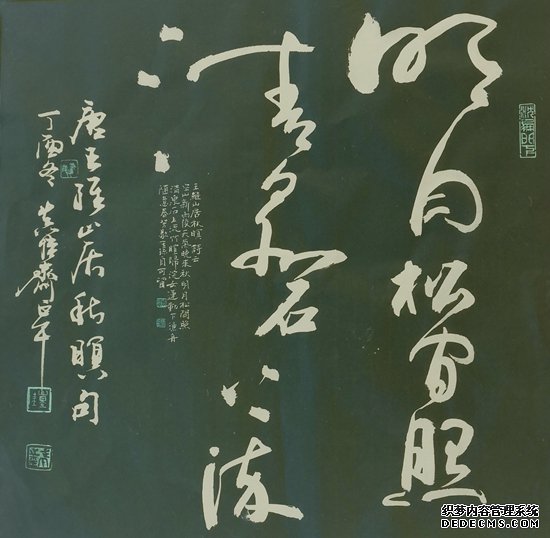 明月松间照
清泉石上流
王维山居秋暝诗云
空山新雨后天气晚来秋明月松间照
清泉石上流竹喧归浣女莲动下渔舟
随意春芳歇王孙自可留
唐王维山居秋暝句
丁酉冬
织梦内容管理系统
DEDECMS.COM